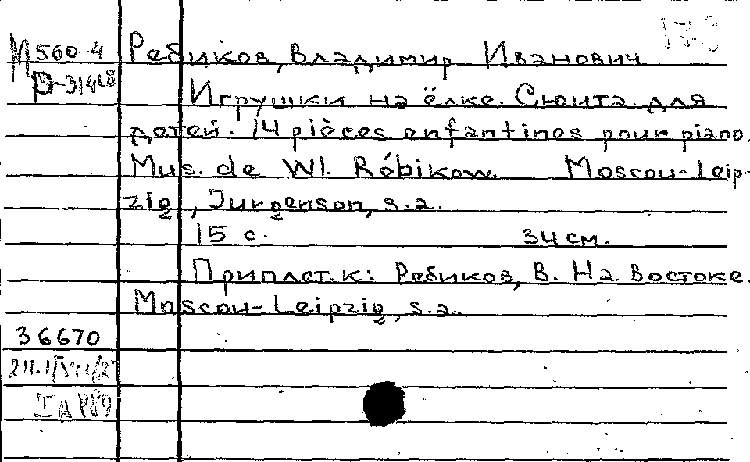 М560-4 Ребиков, Владимир Иванович
Р-31448 Игрушки на ёлке. Сюита для
детей. 14 pièces enfantines pour piano.
Mus. de Wl. Rébikow. Moscou-Leip-
zig, Jurgenson, s.a.
15 с. 34 см.
Приплет. к: Ребиков, В. На Востоке.
Moscou-Leipzig, s.a.
36670